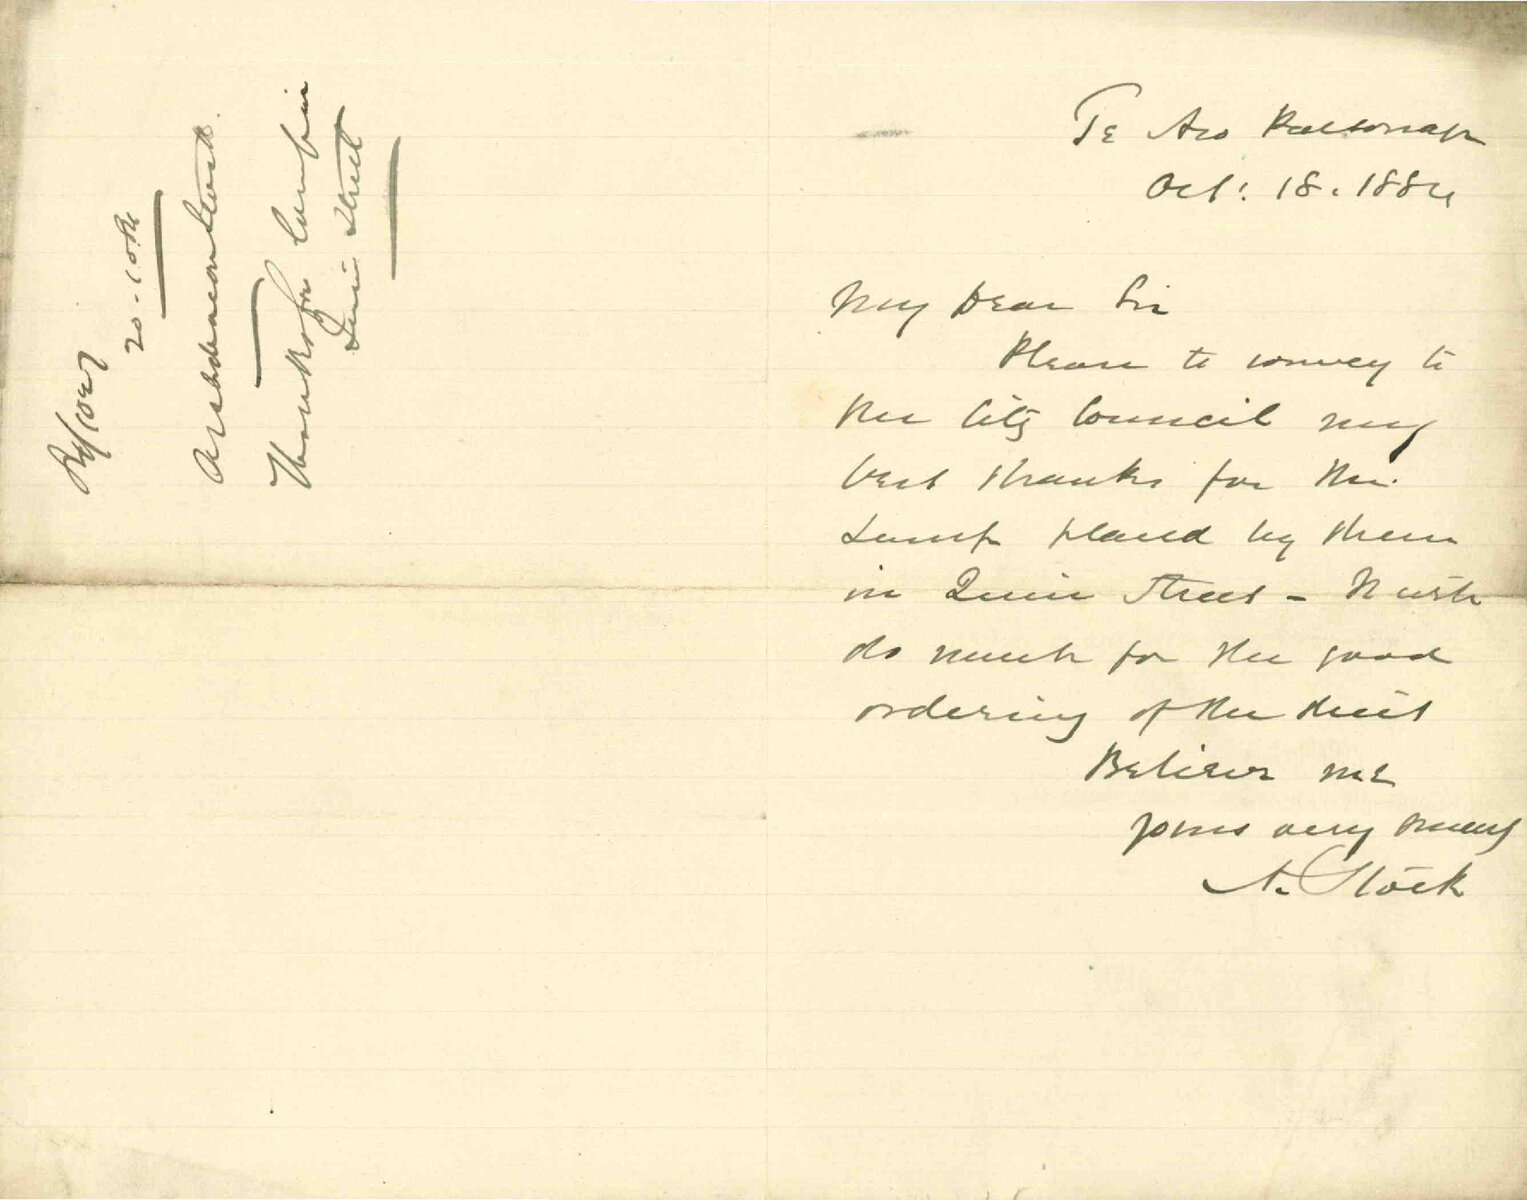 Te Aro Parsonage
Oct: 18. 1884
My Dear Sir
Please to convey to
the City Council my
best thanks for the
Lamp placed by them
in Quin Street – It will
do much for the good
ordering of the Street
Believe me
yours very truly
A. Stock
20 - 10 84
Archdeacon Stock
Thanks for Lamp in
Quin Street